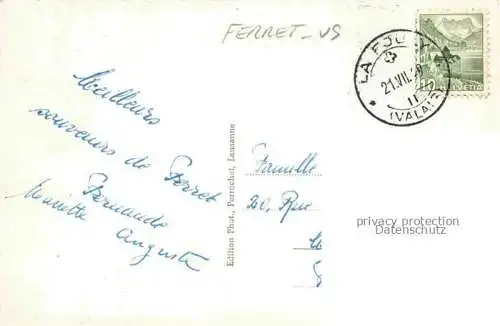 FERRET _ VS
LA FOULY
21.VII.
(VALAIS)
HELVETIA
Meilleurs
souvenirs de Ferret
Fernande
Mariette Auguste
Edition Phot. Perrochet, Lausanne
Famille
20, Rue
privacy protection
Datenschutz